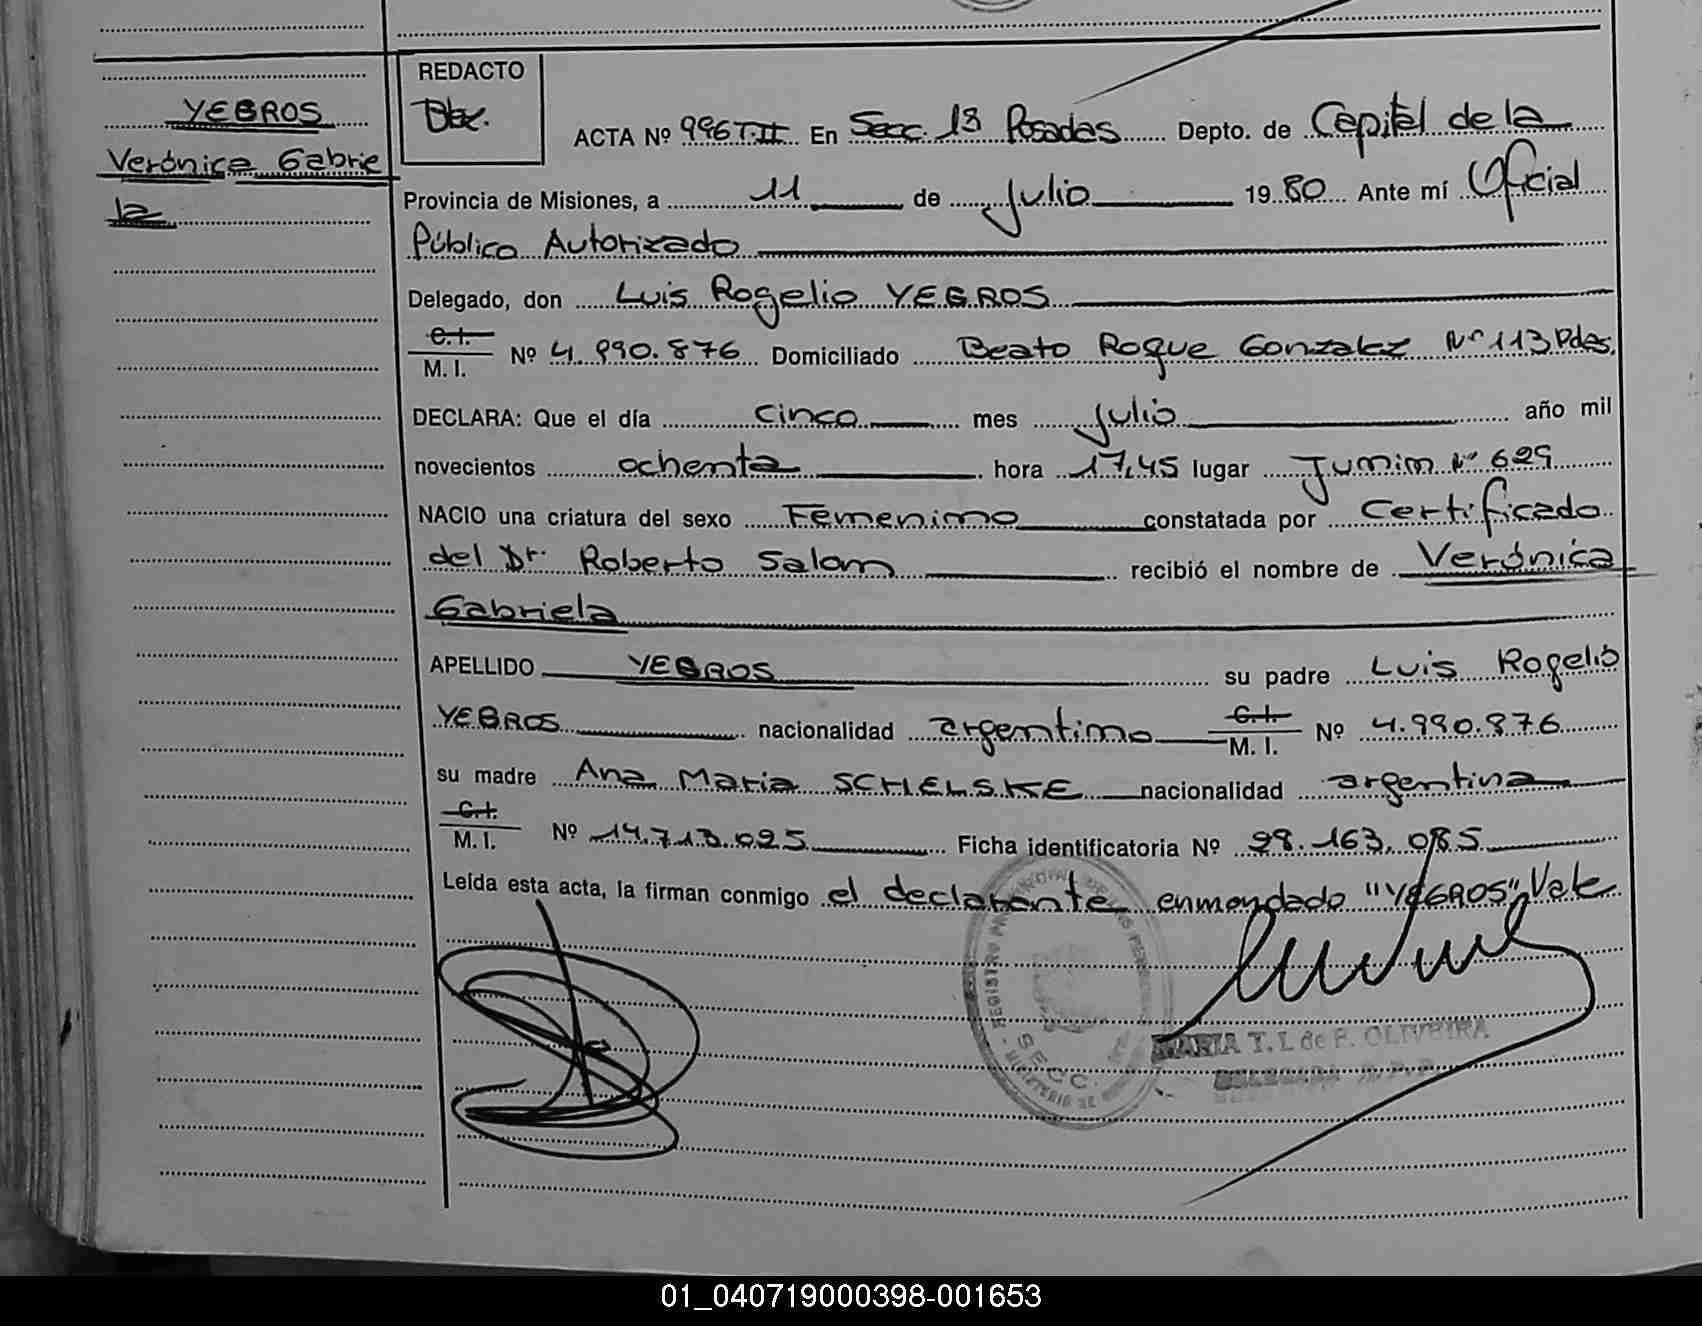 YEGROS
Verónica Gabrie
la
REDACTO
ACTA Nº 996 T.II En Secc. 13 Posadas Depto. de Capital de la
Provincia de Misiones, a 11 de Julio 1980 Ante mí Oficial
Público Autorizado
Delegado, don Luis Rogelio YEGROS
C.I.
M. I. Nº 4.990.876 Domiciliado Beato Roque Gonzalez Nº 113 Pdas.
DECLARA: Que el día cinco mes Julio año mil
novecientos ochenta hora 17,45 lugar Junin Nº 629
NACIO una criatura del sexo Femenino constatada por Certificado
del Dr. Roberto Salom recibió el nombre de Verónica
Gabriela
APELLIDO YEGROS su padre Luis Rogelio
YEGROS nacionalidad argentino C.I. M. I. Nº 4.990.876
su madre Ana Maria SCHELSKE nacionalidad argentina
C.I.
M. I. Nº 14.713.025 Ficha identificatoria Nº 28.163.085
Leída esta acta, la firman conmigo el declarante enmendado "YEGROS", Vale
SECC.
MARIA T. L de F. OLIVEIRA
DELEGADA
01_040719000398-001653